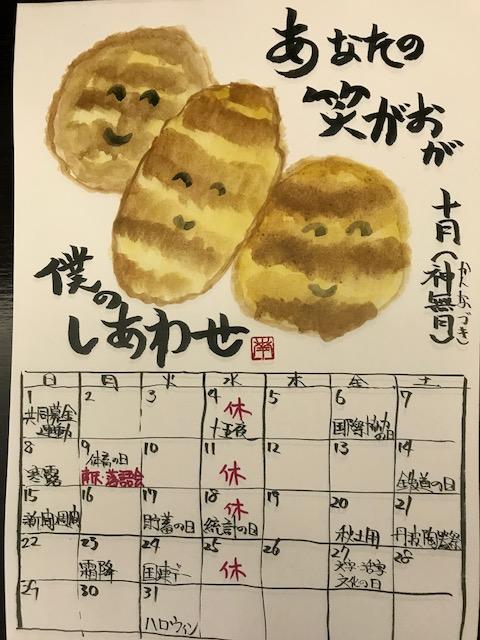 あなたの
笑がおが
十月(神無月)
かんなづき
僕の
しあわせ
日 月 火 水 木 金 土
1 2 3 4 5 6 7
共同募金
運動
休
十五夜
国際協力
の日
8 9 10 11 12 13 14
寒露
体育の日
落語会
休
鉄道の日
15 16 17 18 19 20 21
新聞週間
貯蓄の日
休
統計の日
秋土用
丹波陶器祭
22 23 24 25 26 27 28
霜降
国連デー
休
文字・活字
文化の日
29 30 31
ハロウィン